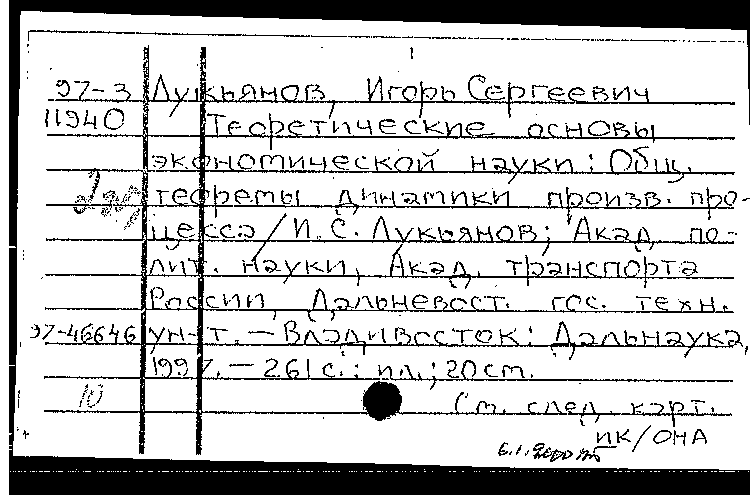 1
97-3 Лукьянов, Игорь Сергеевич
11940 Теоретические основы
экономической науки: Общ.
2 экз теоремы динамики произв. про-
цесса / И.С. Лукьянов; Акад. по-
лит. науки, Акад. транспорта
России, Дальневост. гос. техн.
97-46646 ун-т. – Владивосток: Дальнаука,
1997. – 261 с.: ил.; 20 см.
10 См. след. карт.
ИК/ОНА